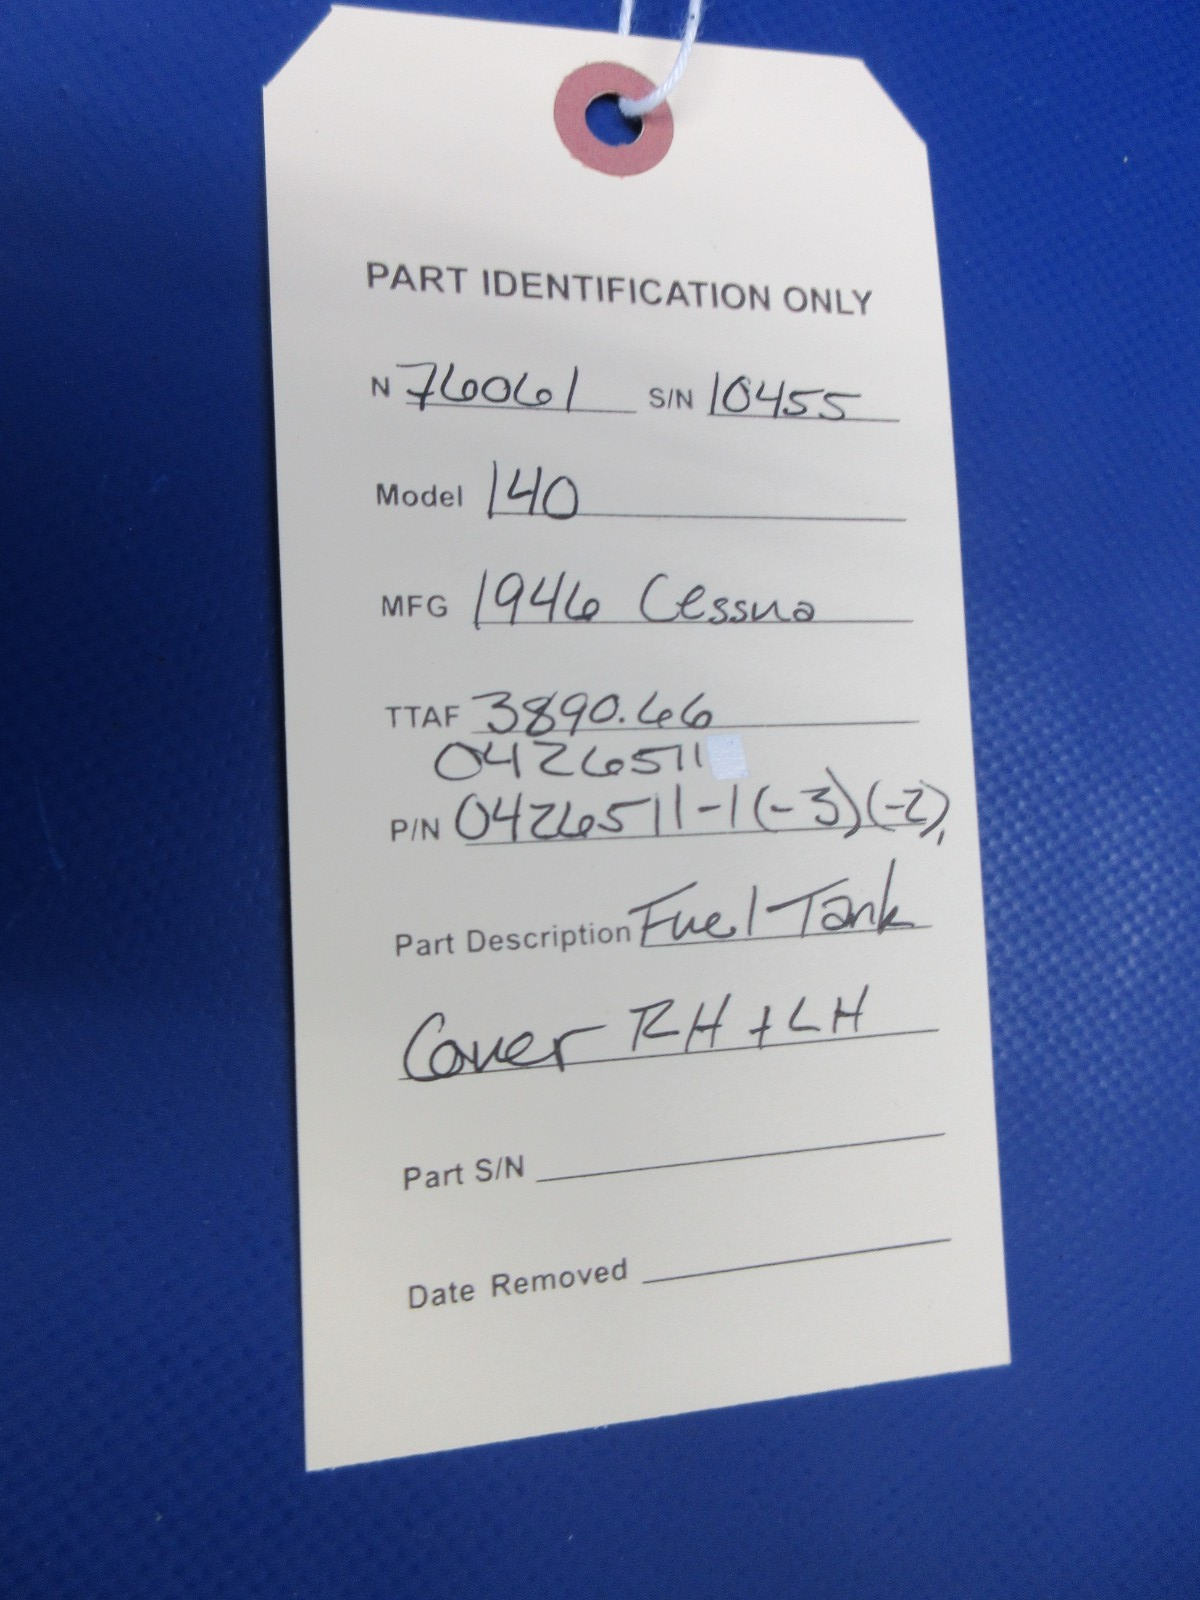 PART IDENTIFICATION ONLY
N 76061 S/N 10455
Model 140
MFG 1946 Cessna
TTAF 3890.66
0426511
P/N 0426511-1(-3)(-2),
Part Description Fuel Tank
Cover RH + LH
Part S/N
Date Removed